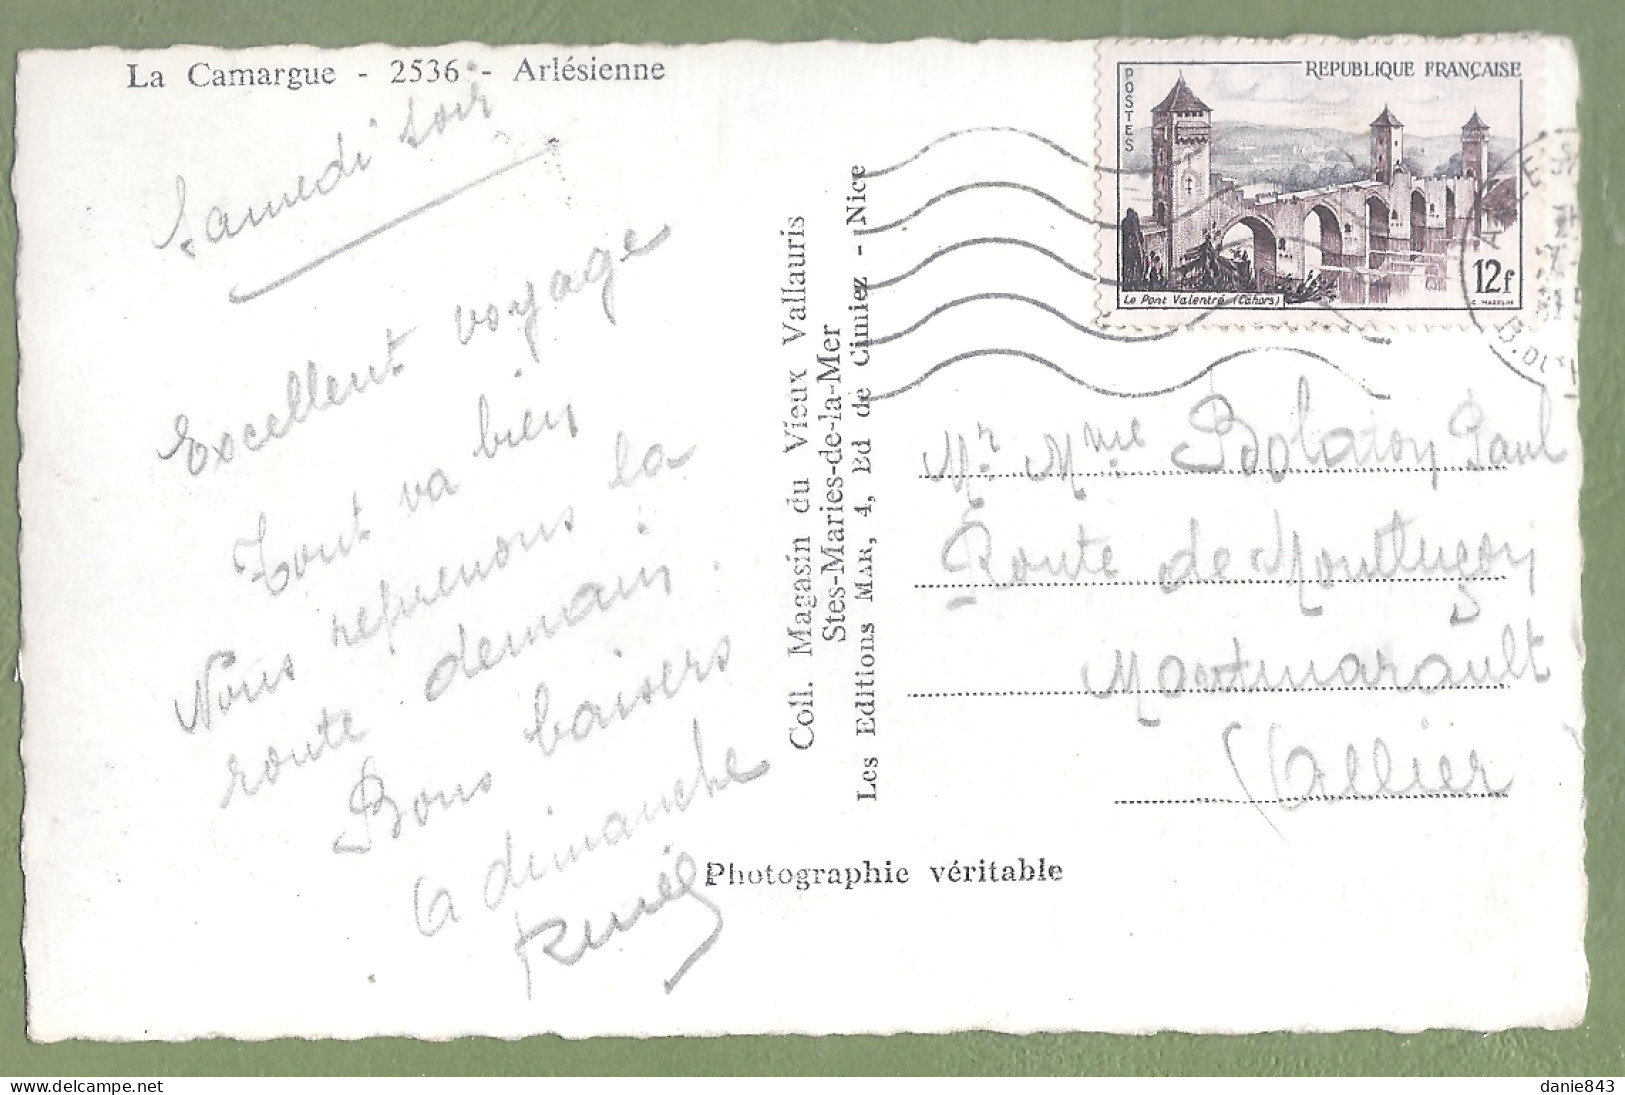 La Camargue - 2536 - Arlésienne
Samedi soir
Excellent voyage
Tout va bien
Nous reprenons la
route demain.
Bons baisers
a dimanche
POSTES
REPUBLIQUE FRANÇAISE
Le Pont Valentré (Cahors)
12f
C. MAZELIN
Coll. Magasin du Vieux Vallauris
Stes-Maries-de-la-Mer
Les Editions MAR, 4, Bd de Cimiez - Nice
Mr Mme Bolaton Paul
Route de Montluçon
Montmarault
(Allier
Photographie véritable
danie843